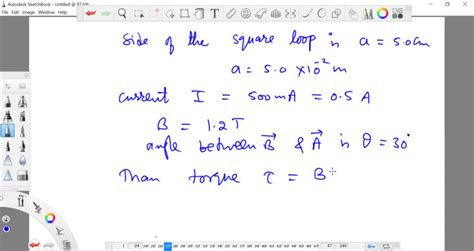 Autodesk SketchBook - Untitled @ 87.6%
Side of the square loop is a = 5.0 cm
a = 5.0 × 10⁻² m
current I = 500 mA = 0.5 A
B = 1.2 T
angle between B⃗ & A⃗ is θ = 30°
Than torque τ = B